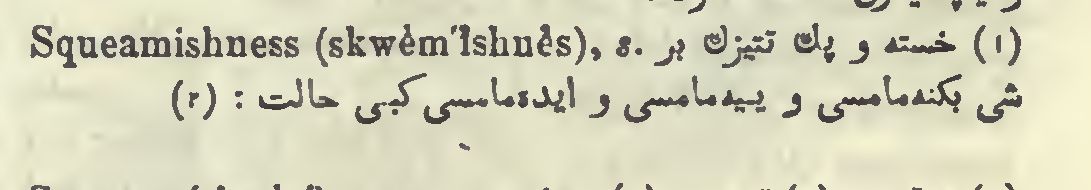 Squeamishness (skwĕm'ĭshnĕs), s. (١) خسته و پك تتیزك بر
شی بكنه‌مامسی و ییه‌مامسی و ایده‌مامسی كبی حالت : (٢)